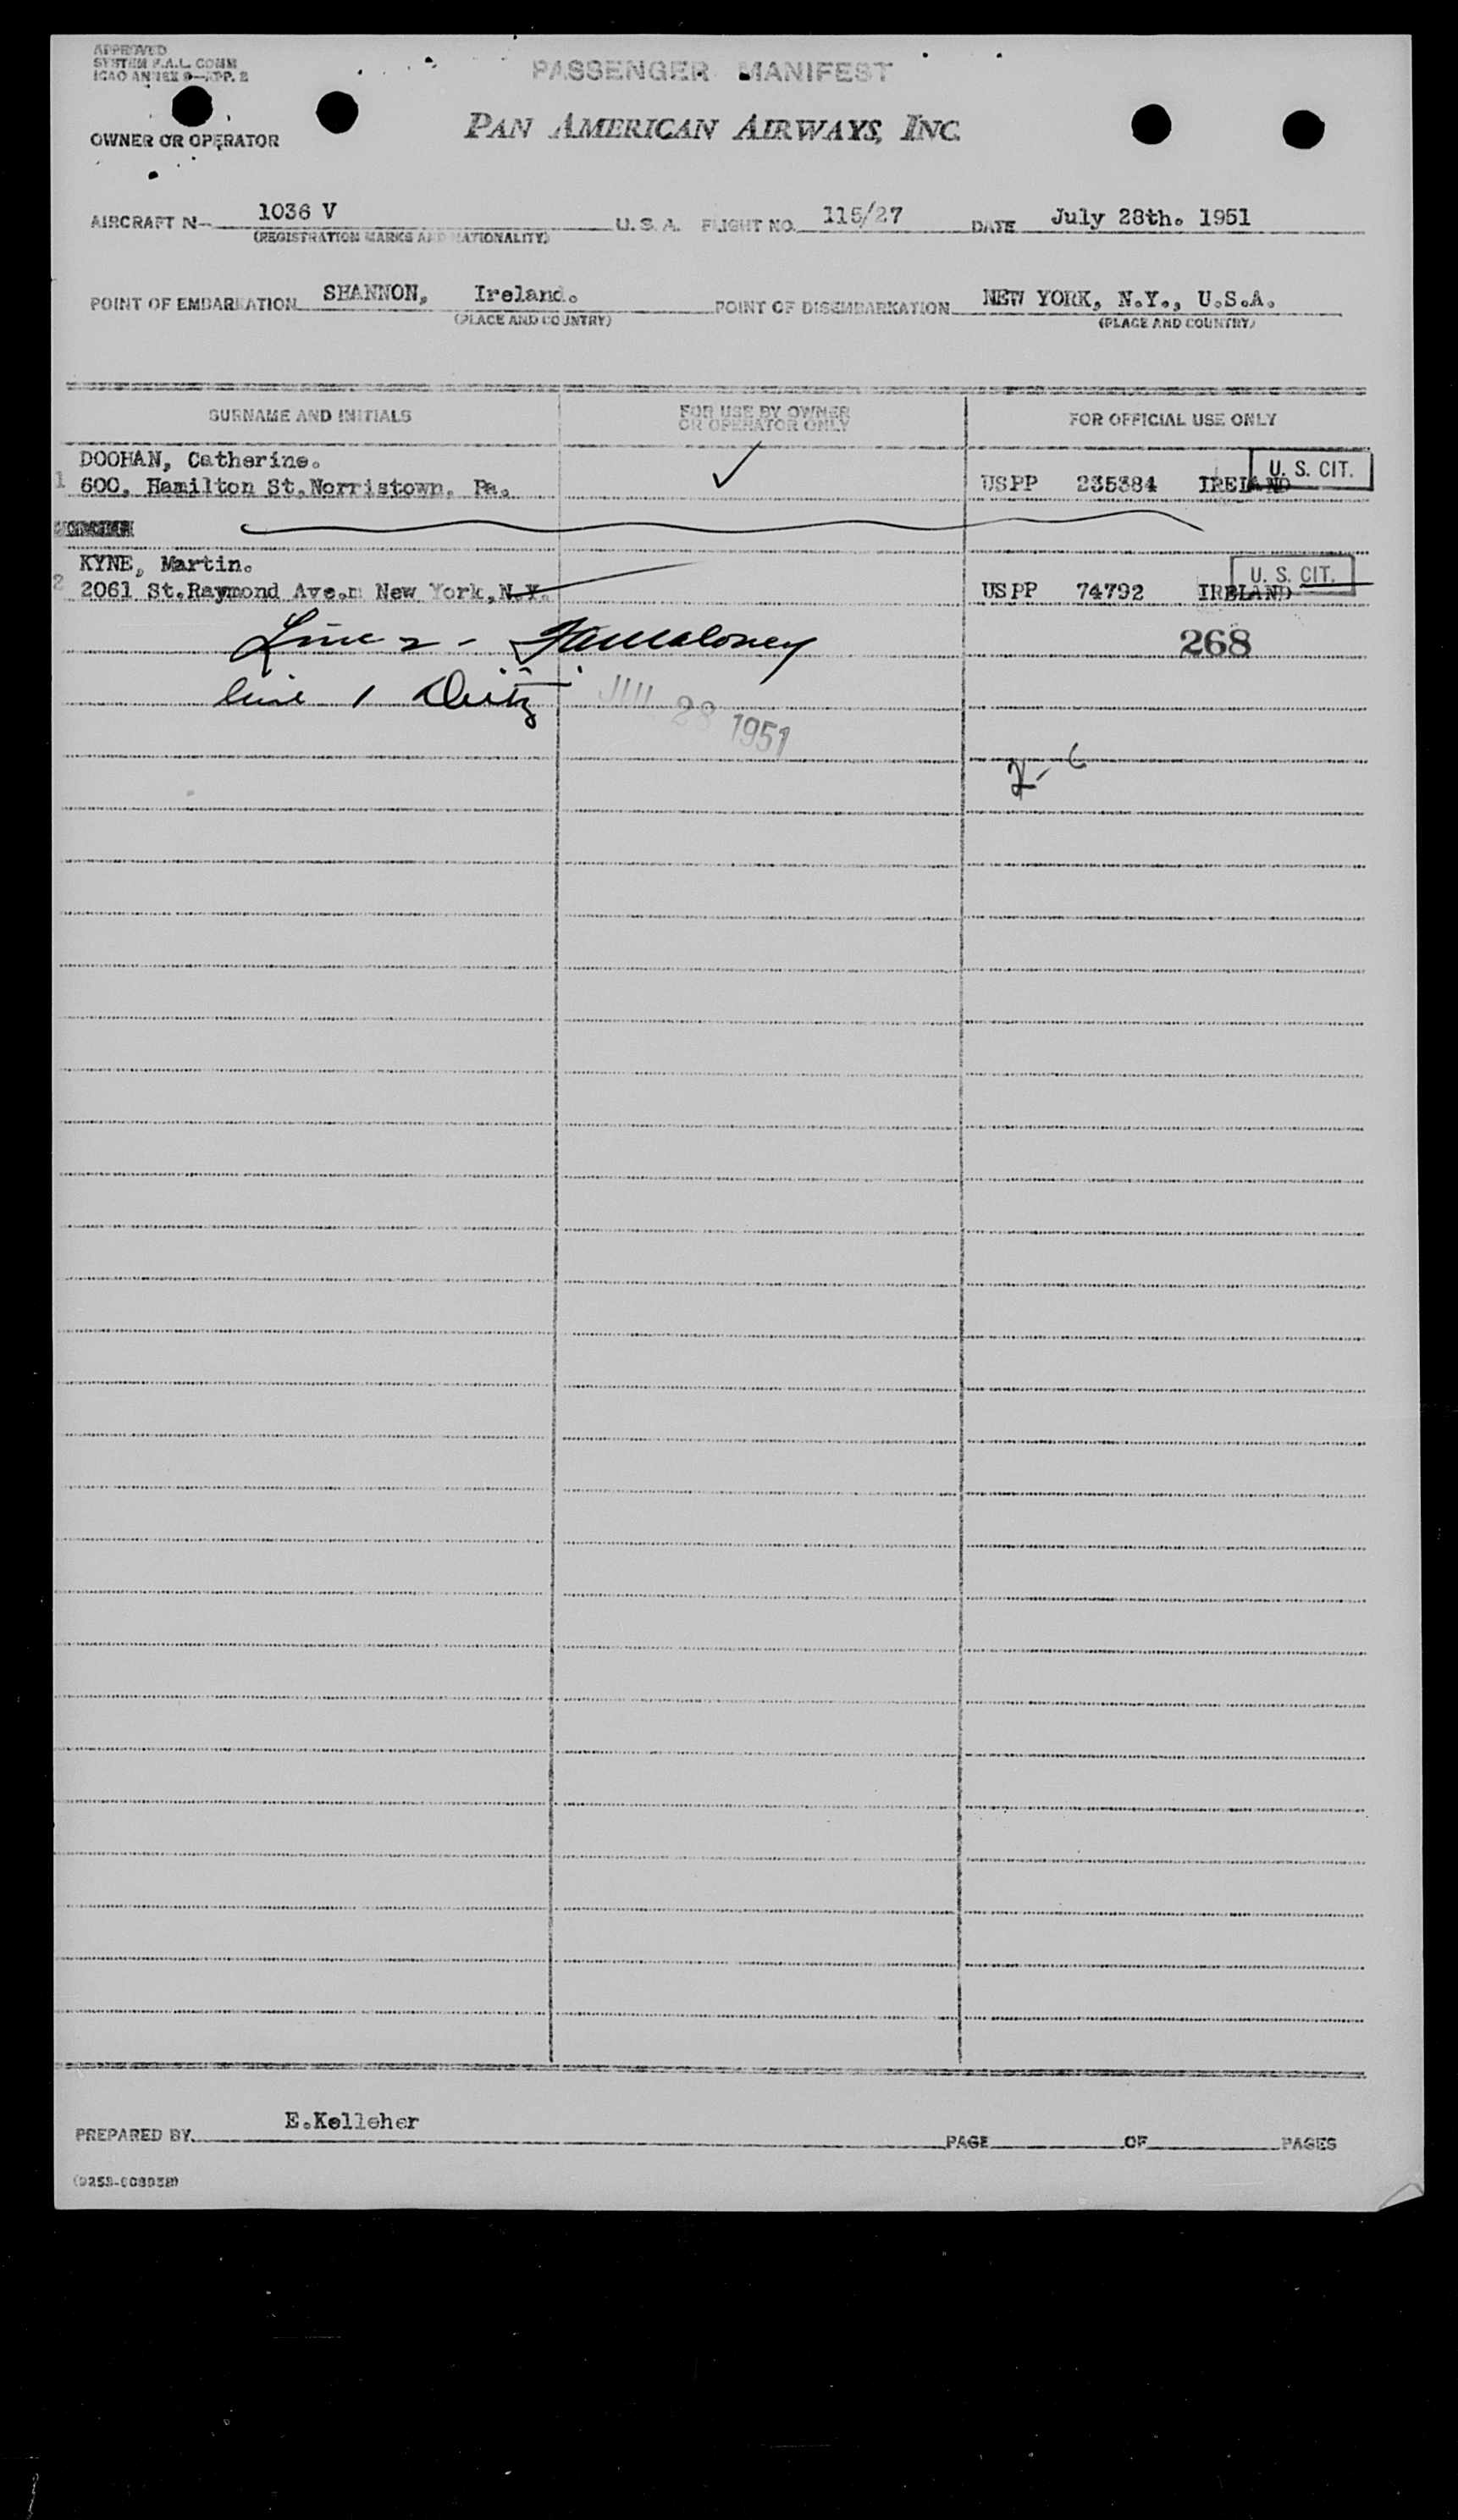 APPROVED
SYSTEM F.A.L. COMM
ICAO ANNEX 9—APP. 2
PASSENGER MANIFEST
PAN AMERICAN AIRWAYS, INC.
OWNER OR OPERATOR
AIRCRAFT N— 1036 V U.S.A. FLIGHT NO. 115/27 DATE July 28th. 1951
(REGISTRATION MARKS AND NATIONALITY)
POINT OF EMBARKATION SHANNON, Ireland. POINT OF DISEMBARKATION NEW YORK, N.Y., U.S.A.
(PLACE AND COUNTRY) (PLACE AND COUNTRY)
SURNAME AND INITIALS FOR USE BY OWNER OR OPERATOR ONLY FOR OFFICIAL USE ONLY
DOOHAN, Catherine. U. S. CIT.
1 600, Hamilton St.Norristown, Pa. USPP 235384 IRELAND
KYNE, Martin. U. S. CIT.
2 2061 St.Raymond Ave. New York,N.Y. USPP 74792 IRELAND
Line 2 - Maloney 268
line 1 Deitz
JUL 28 1951
PREPARED BY E.Kelleher PAGE OF PAGES